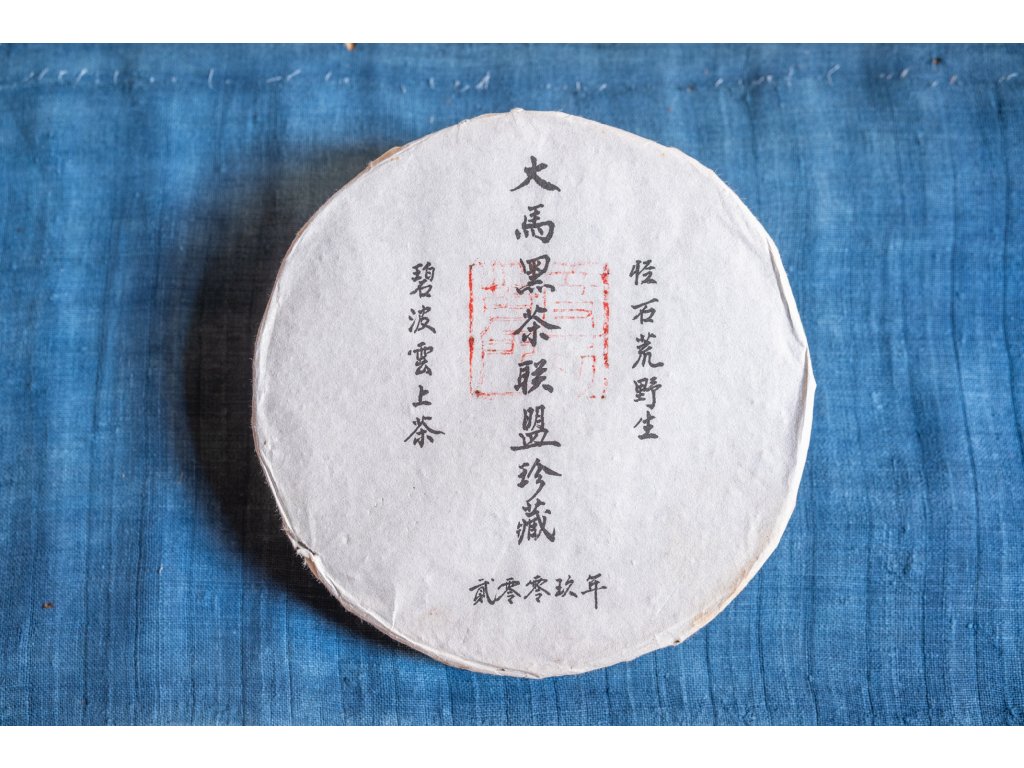 怪石荒野生
大馬黑茶联盟珍藏
碧波雲上茶
貳零零玖年